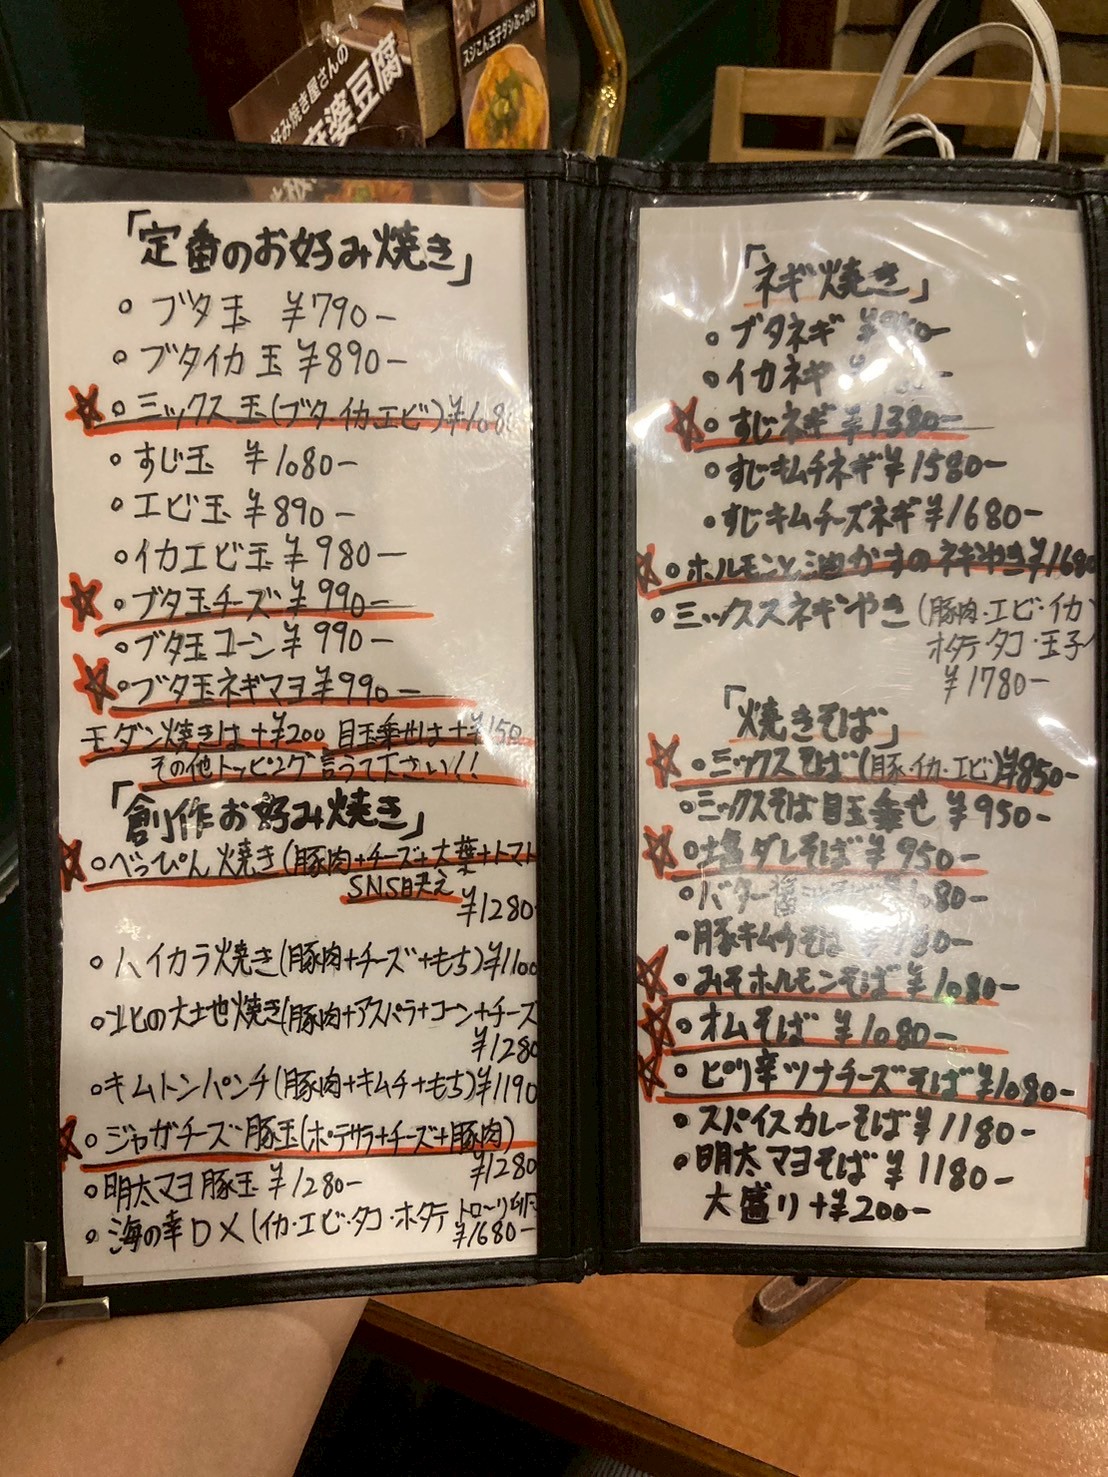 好み焼き屋さんの
麻婆豆腐
スジこん玉子ダシぶっかけ
「定番のお好み焼き」
○ ブタ玉 ¥790-
○ ブタイカ玉 ¥890-
☆ ○ ミックス玉(ブタ・イカエビ)¥1080
○ すじ玉 ¥1080-
○ エビ玉 ¥890-
○ イカエビ玉 ¥980-
☆ ○ ブタ玉チーズ ¥990-
○ ブタ玉コーン ¥990-
☆ ○ ブタ玉ネギマヨ ¥990-
モダン焼きは+¥200 目玉乗せは+¥150
その他トッピング言って下さい!!
「創作お好み焼き」
☆ ○ べっぴん焼き(豚肉+チーズ+大葉+トマト
SNS映え
¥1280-
○ ハイカラ焼き(豚肉+チーズ+もち)¥1100
○ 北の大地焼き(豚肉+アスパラ+コーン+チーズ
¥1280
○ キムトンパンチ(豚肉+キムチ+もち)¥1190
☆ ○ ジャガチーズ豚玉(ポテサラ+チーズ+豚肉)
¥1280
○ 明太マヨ豚玉 ¥1280-
○ 海の幸DX(イカ・エビ・タコ・ホタテ
¥1680-
「ネギ焼き」
○ ブタネギ
○ イカネギ
☆ ○ すじネギ ¥1380-
○ すじキムチネギ ¥1580-
○ すじキムチーズネギ ¥1680-
☆ ○ ホルモンと油かすのネギやき ¥1680
○ ミックスネギやき(豚肉・エビ・イカ
ホタテ・タコ・玉子)
¥1780-
「焼きそば」
☆ ○ ミックスそば(豚・イカ・エビ)¥850-
○ ミックスそば目玉乗せ ¥950-
☆ ○ 塩ダレそば ¥950-
○ バター醤油そば
・豚キムチそば
☆ ○ みそホルモンそば ¥1080-
☆ ○ オムそば ¥1080-
☆ ○ ピリ辛ツナチーズそば ¥1080-
○ スパイスカレーそば ¥1180-
○ 明太マヨそば ¥1180-
大盛り +¥200-